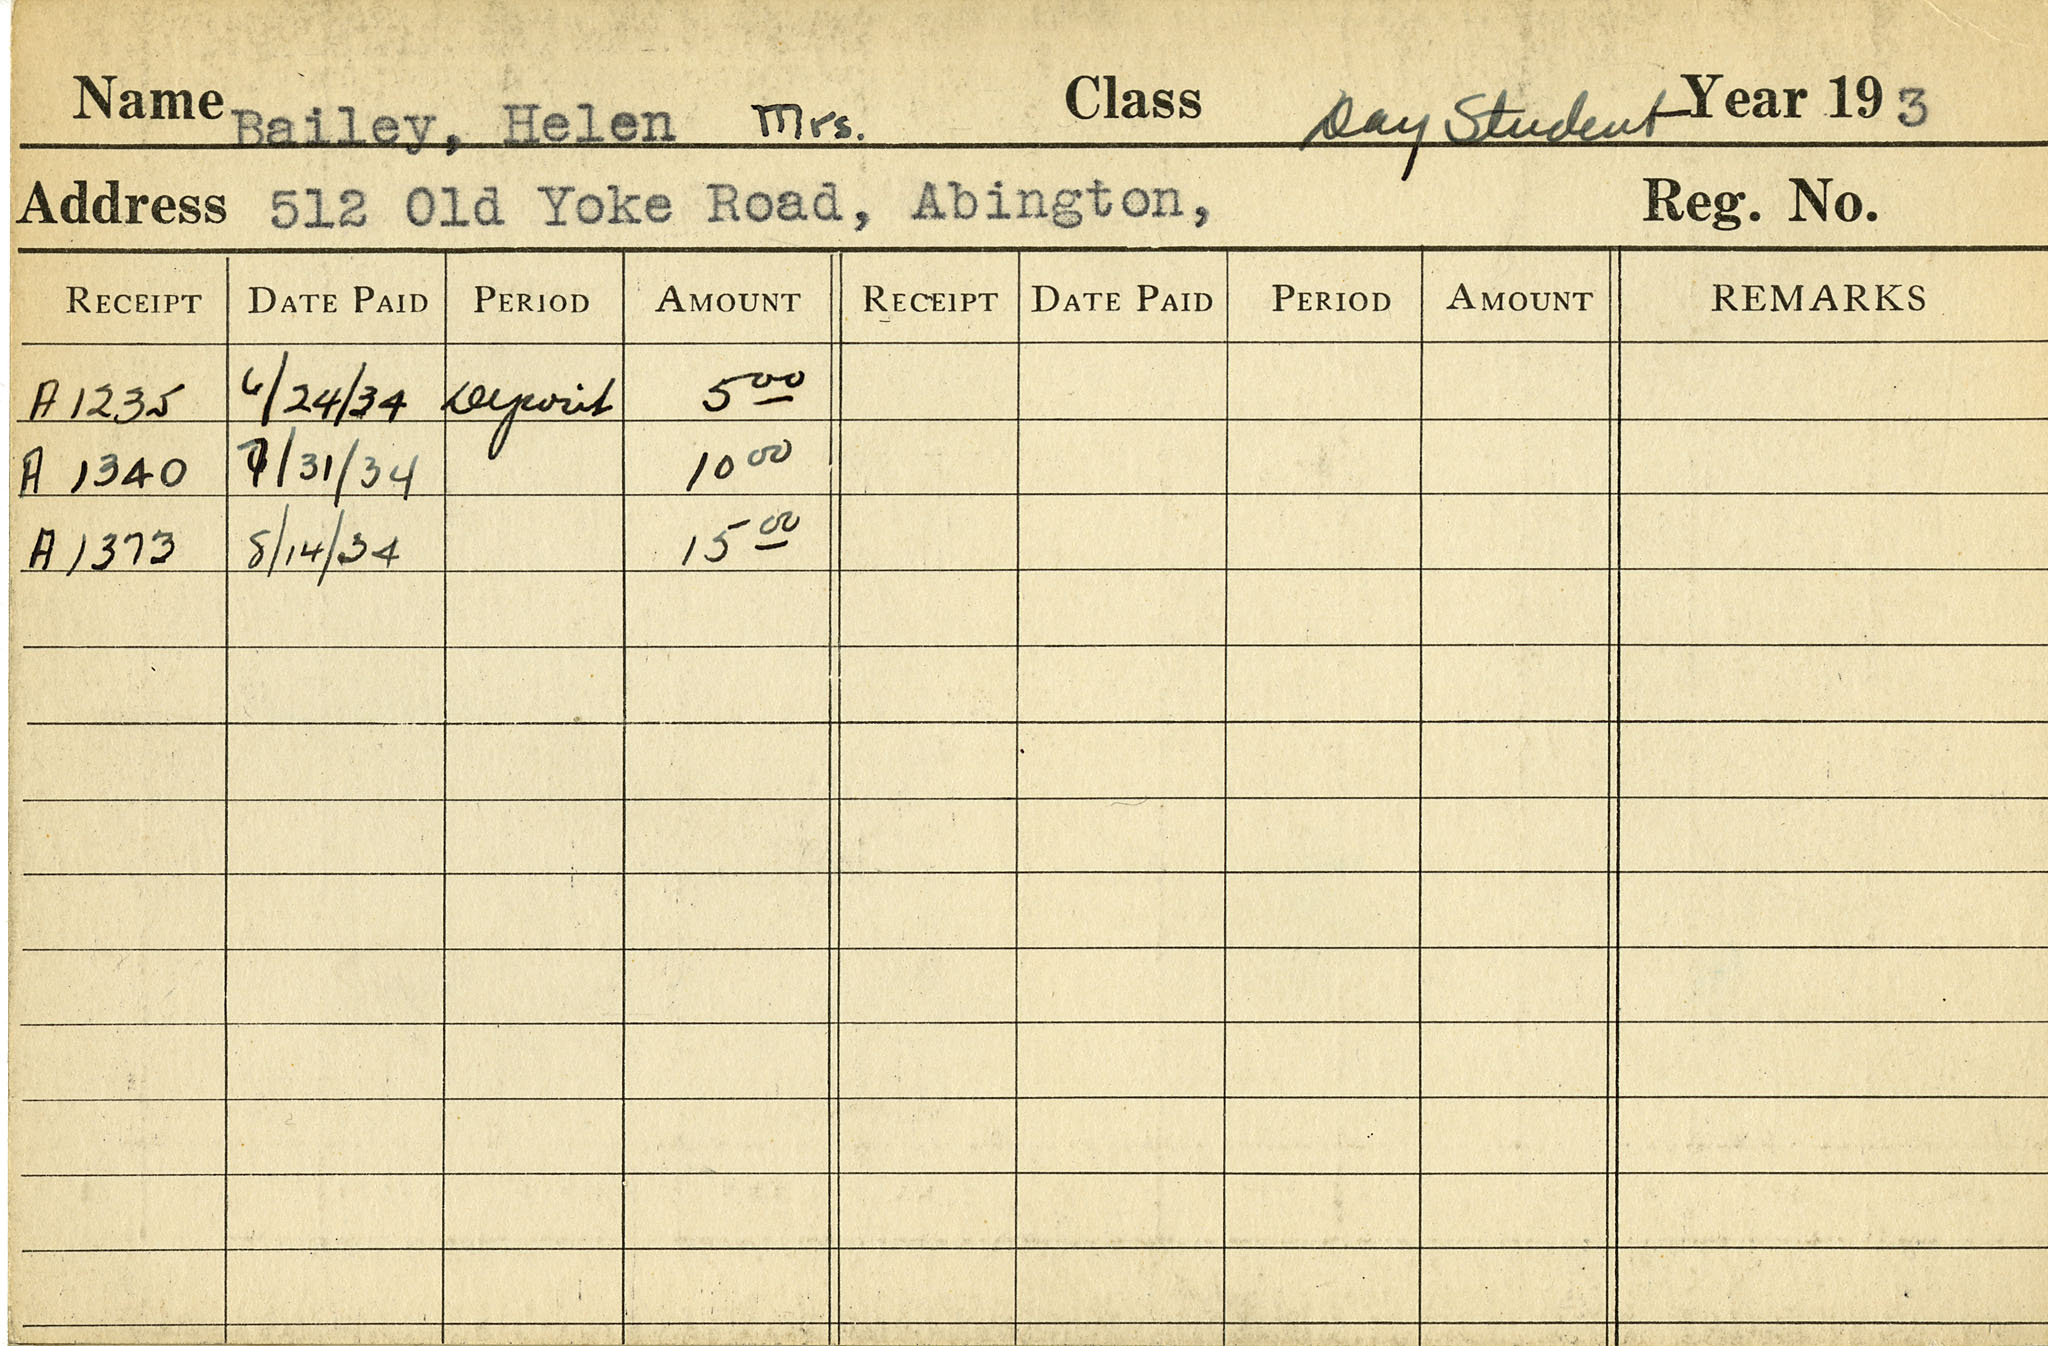 Name Bailey, Helen Mrs. Class Day Student Year 193
Address 512 Old Yoke Road, Abington, Reg. No.
RECEIPT DATE PAID PERIOD AMOUNT RECEIPT DATE PAID PERIOD AMOUNT REMARKS
A 1235 6/24/34 Deposit 5 00
A 1340 7/31/34 10 00
A 1373 8/14/34 15 00